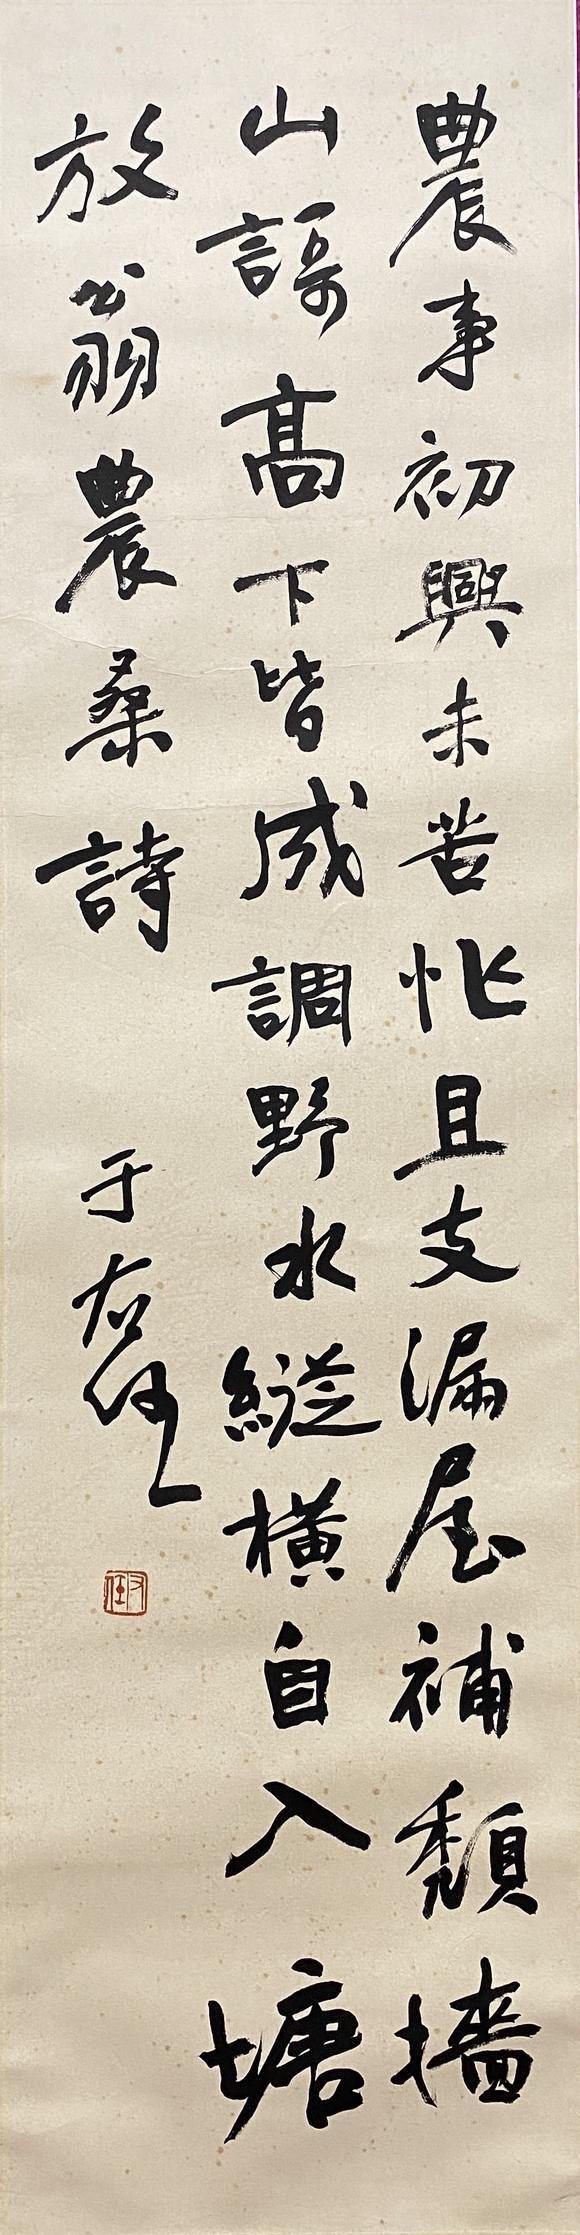 農事初興未苦忙且支漏屋補頹墻
山謌高下皆成調野水縱橫自入塘
放翁農桑詩
于右任
右任